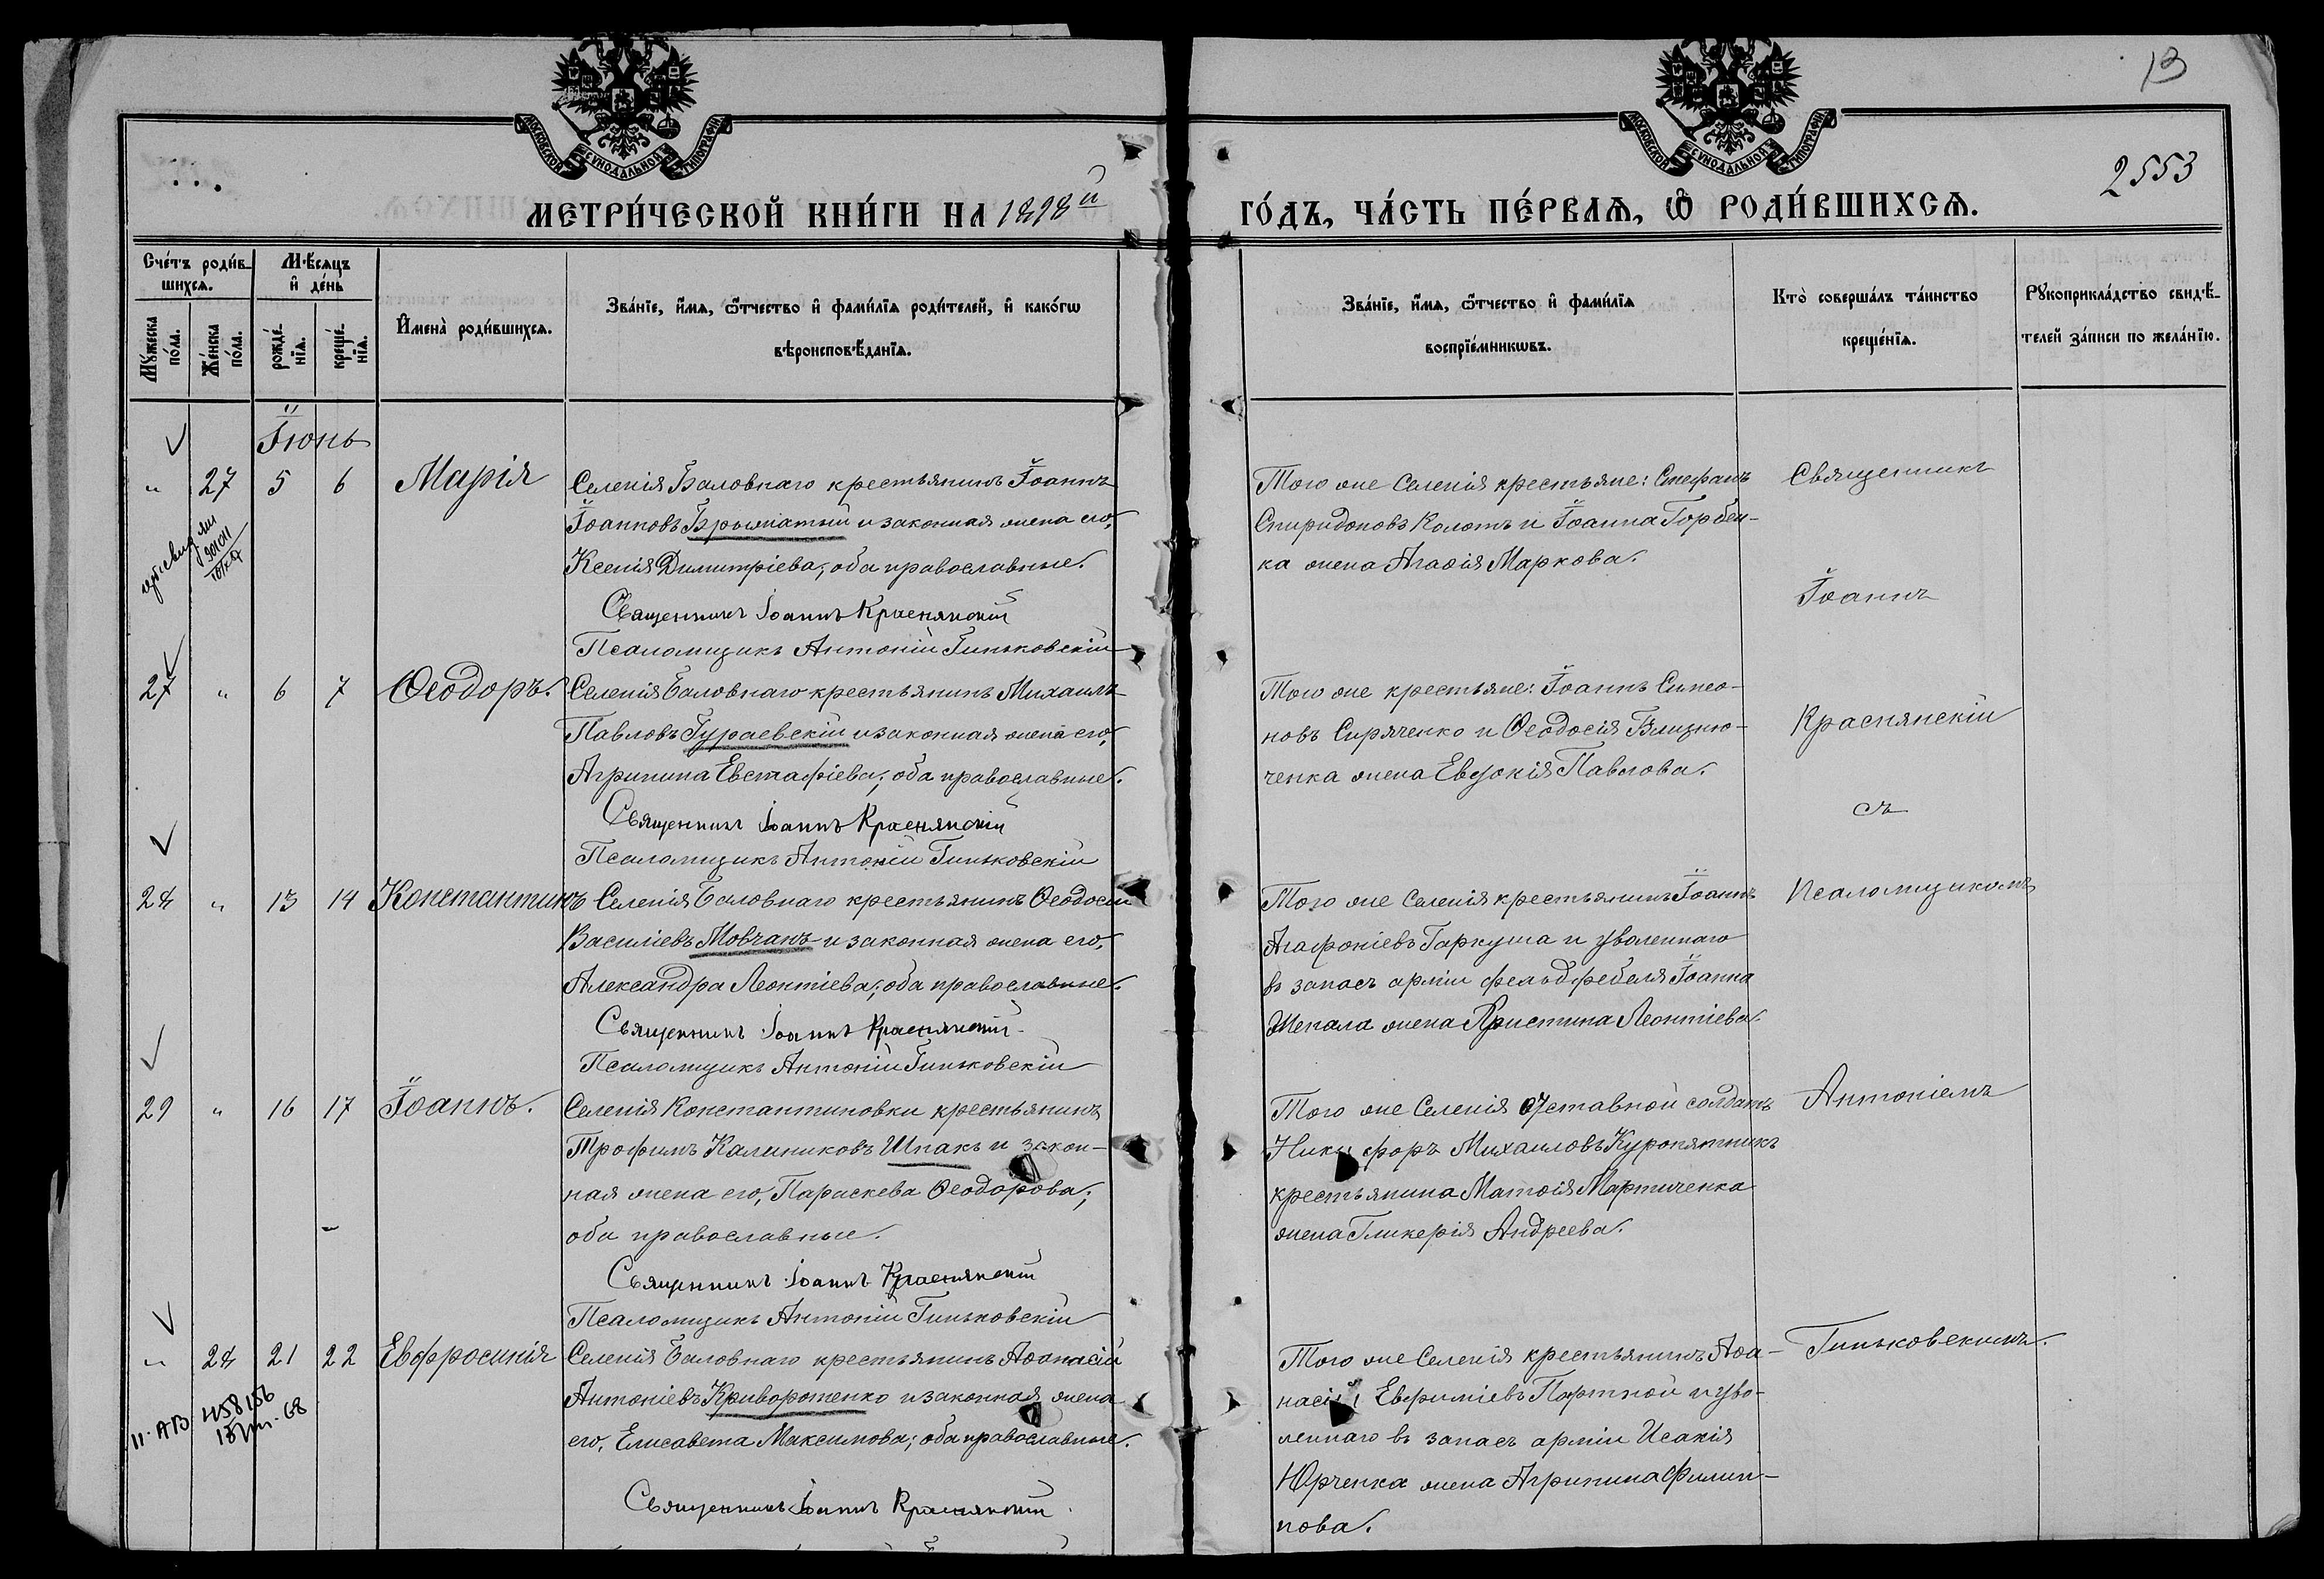 13
2553
МОСКОВСКОЙ СУНОДАЛЬНОЙ ТИПОГРАФІИ
МОСКОВСКОЙ СУНОДАЛЬНОЙ ТИПОГРАФІИ
МЕТРИ́ЧЕСКОЙ КНИ́ГИ НА 1898й
ГО́ДЪ, ЧА́СТЬ ПЕ́РВАѦ, Ѽ РОДИ́ВШИХСѦ.
Сче́тъ роди́в-
шихсѧ.
Мѣ́сѧцъ
и҆ де́нь
Мꙋ́жеска по́ла.
Же́нска по́ла.
рожде́-
нїѧ.
креще́-
нїѧ.
И҆мена̀ роди́вшихсѧ.
Зва́нїе, и҆́мѧ, ѻ҆́тчество и҆ фами́лїѧ роди́телей, и҆ како́гѡ
вѣроисповѣ́данїѧ.
Зва́нїе, и҆́мѧ, ѻ҆́тчество и҆ фами́лїѧ
воспрїе́мникѡвъ.
Кто̀ соверша́лъ та́инство
креще́нїѧ.
Рꙋкоприкла́дство свидѣ́-
телей за́писи по жела́нїю.
Іюнь
" 27 5 6 Марія
Селенія Баловнаго крестьянинъ Іоаннъ
Іоанновъ и законная жена его,
Ксенія Димитріева; оба православные.
Священникъ Іоаннъ Краснянскій
Псаломщикъ Антоній Гиньковскій
Того же Селенія крестьяне: Стефанъ
Спиридоновъ Коломъ и Іоанна Горбен-
ка жена Агафія Маркова.
Священникъ
Іоаннъ
27 " 6 7 Ѳеодоръ.
Селенія Баловнаго крестьянинъ Михаилъ
Павловъ Гураевскій и законная жена его,
Агрипина Евстафіева; оба православные.
Священникъ Іоаннъ Краснянскій
Псаломщикъ Антоній Гиньковскій
Того же крестьяне: Іоаннъ Симео-
новъ Сиряченко и Ѳеодосія Близню-
ченка жена Евдокія Павлова.
Краснянскій
съ
28 " 13 14 Константинъ
Селенія Баловнаго крестьянинъ Ѳеодосій
Василіевъ Мовчанъ и законная жена его,
Александра Леонтіева; оба православные.
Священникъ Іоаннъ Краснянскій
Псаломщикъ Антоній Гиньковскій
Того же Селенія крестьянинъ Іоаннъ
Агафоніевъ Гаркуша и уволеннаго
въ запасъ арміи фельдфебеля Іоанна
Шепала жена Христина Леонтіева.
Псаломщикомъ
29 " 16 17 Іоаннъ.
Селенія Константиновки крестьянинъ
Трофимъ Калиниковъ Шпакъ и закон-
ная жена его, Параскева Ѳеодорова;
оба православные.
Священникъ Іоаннъ Краснянскій
Псаломщикъ Антоній Гиньковскій
Того же Селенія отставной солдатъ
Никифоръ Михаиловъ Куропятникъ
крестьянина Матѳія Мартиченка
жена Гликерія Андреева.
Антоніемъ
" 28 21 22 Евфросинія
II-АВ 458156
Селенія Баловнаго крестьянинъ Аѳанасій
Антоніевъ Криворотенко и законная жена
его, Елисавета Максимова; оба православные.
Священникъ Іоаннъ Краснянскій
Того же Селенія крестьянинъ Аѳа-
насій Евфиміевъ Портной и уво-
леннаго въ запасъ арміи Исакія
Юрченка жена Агрипина Филип-
пова.
Гиньковскимъ.